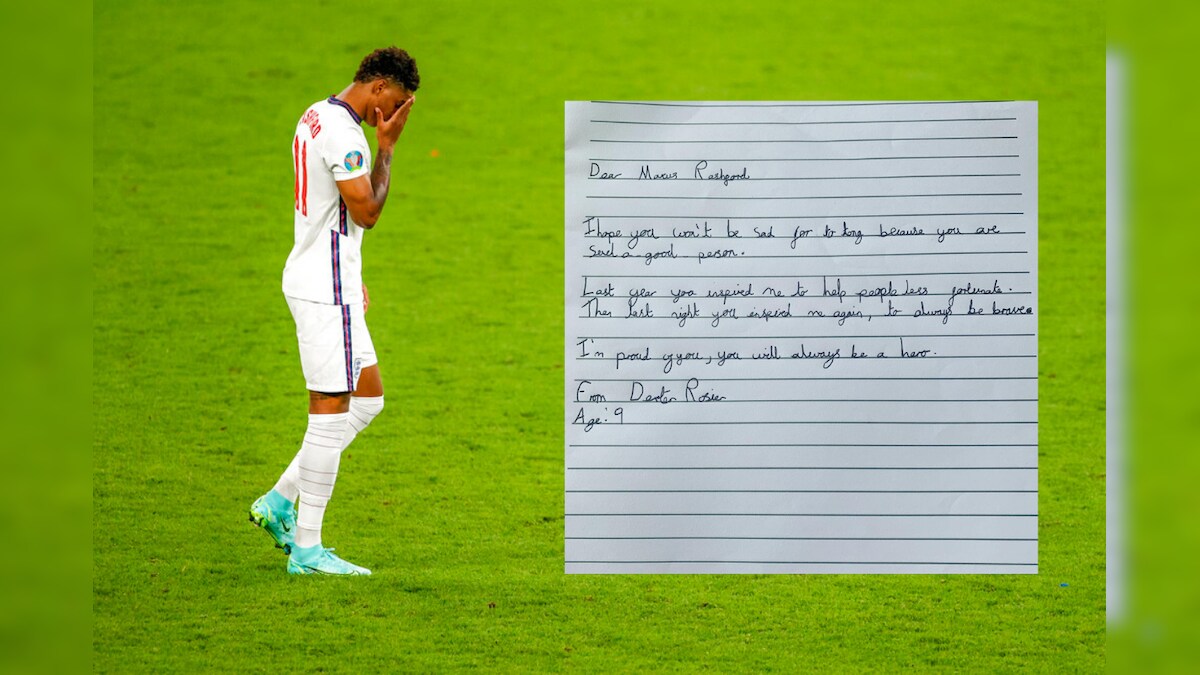 SHFORD
11
Dear Marcus Rashford
I hope you won't be sad for to long because you are
such a good person.
Last year you inspired me to help people less fortunate.
Then last night you inspired me again, to always be brave.
I'm proud of you, you will always be a hero.
From Dexter Rosier
Age: 9